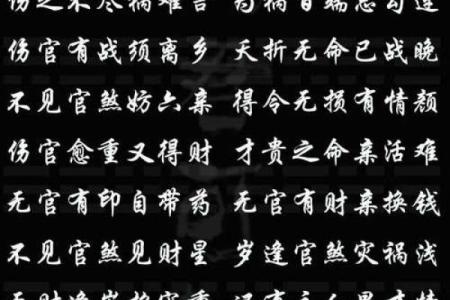 伤之不尽祸难言 为祸百端总勾连
伤官有战须离乡 夭折无命已战晚
不见官煞妨六亲 得令无损有情颜
伤官愈重又得财 才贵之命亲活难
无官有印自带药 无官有财亲换钱
不见官煞见财星 岁逢官煞灾祸浅